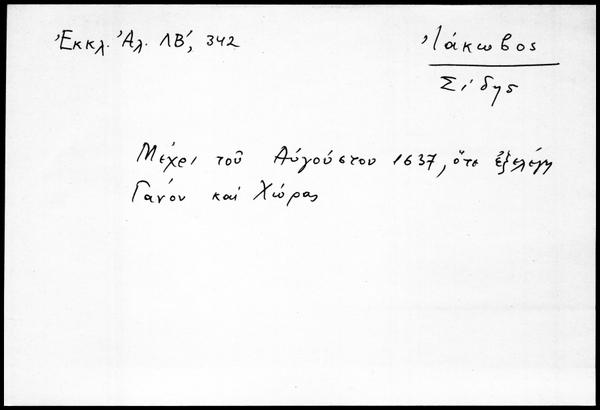 Ἐκκλ. Ἀλ. ΛΒ', 342
Ἰάκωβος
Σίδης
Μέχρι τοῦ Αὐγούστου 1637, ὅτε ἐξελέγη
Γάνου καί Χώρας